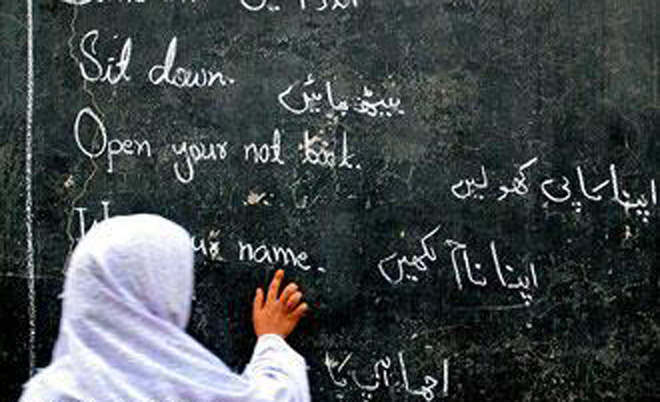 Sit down.
بیٹھ جائیں
Open your not book.
اپنا کاپی کھولیں
name.
اپنا نام لکھیں
اچھا آپ کا